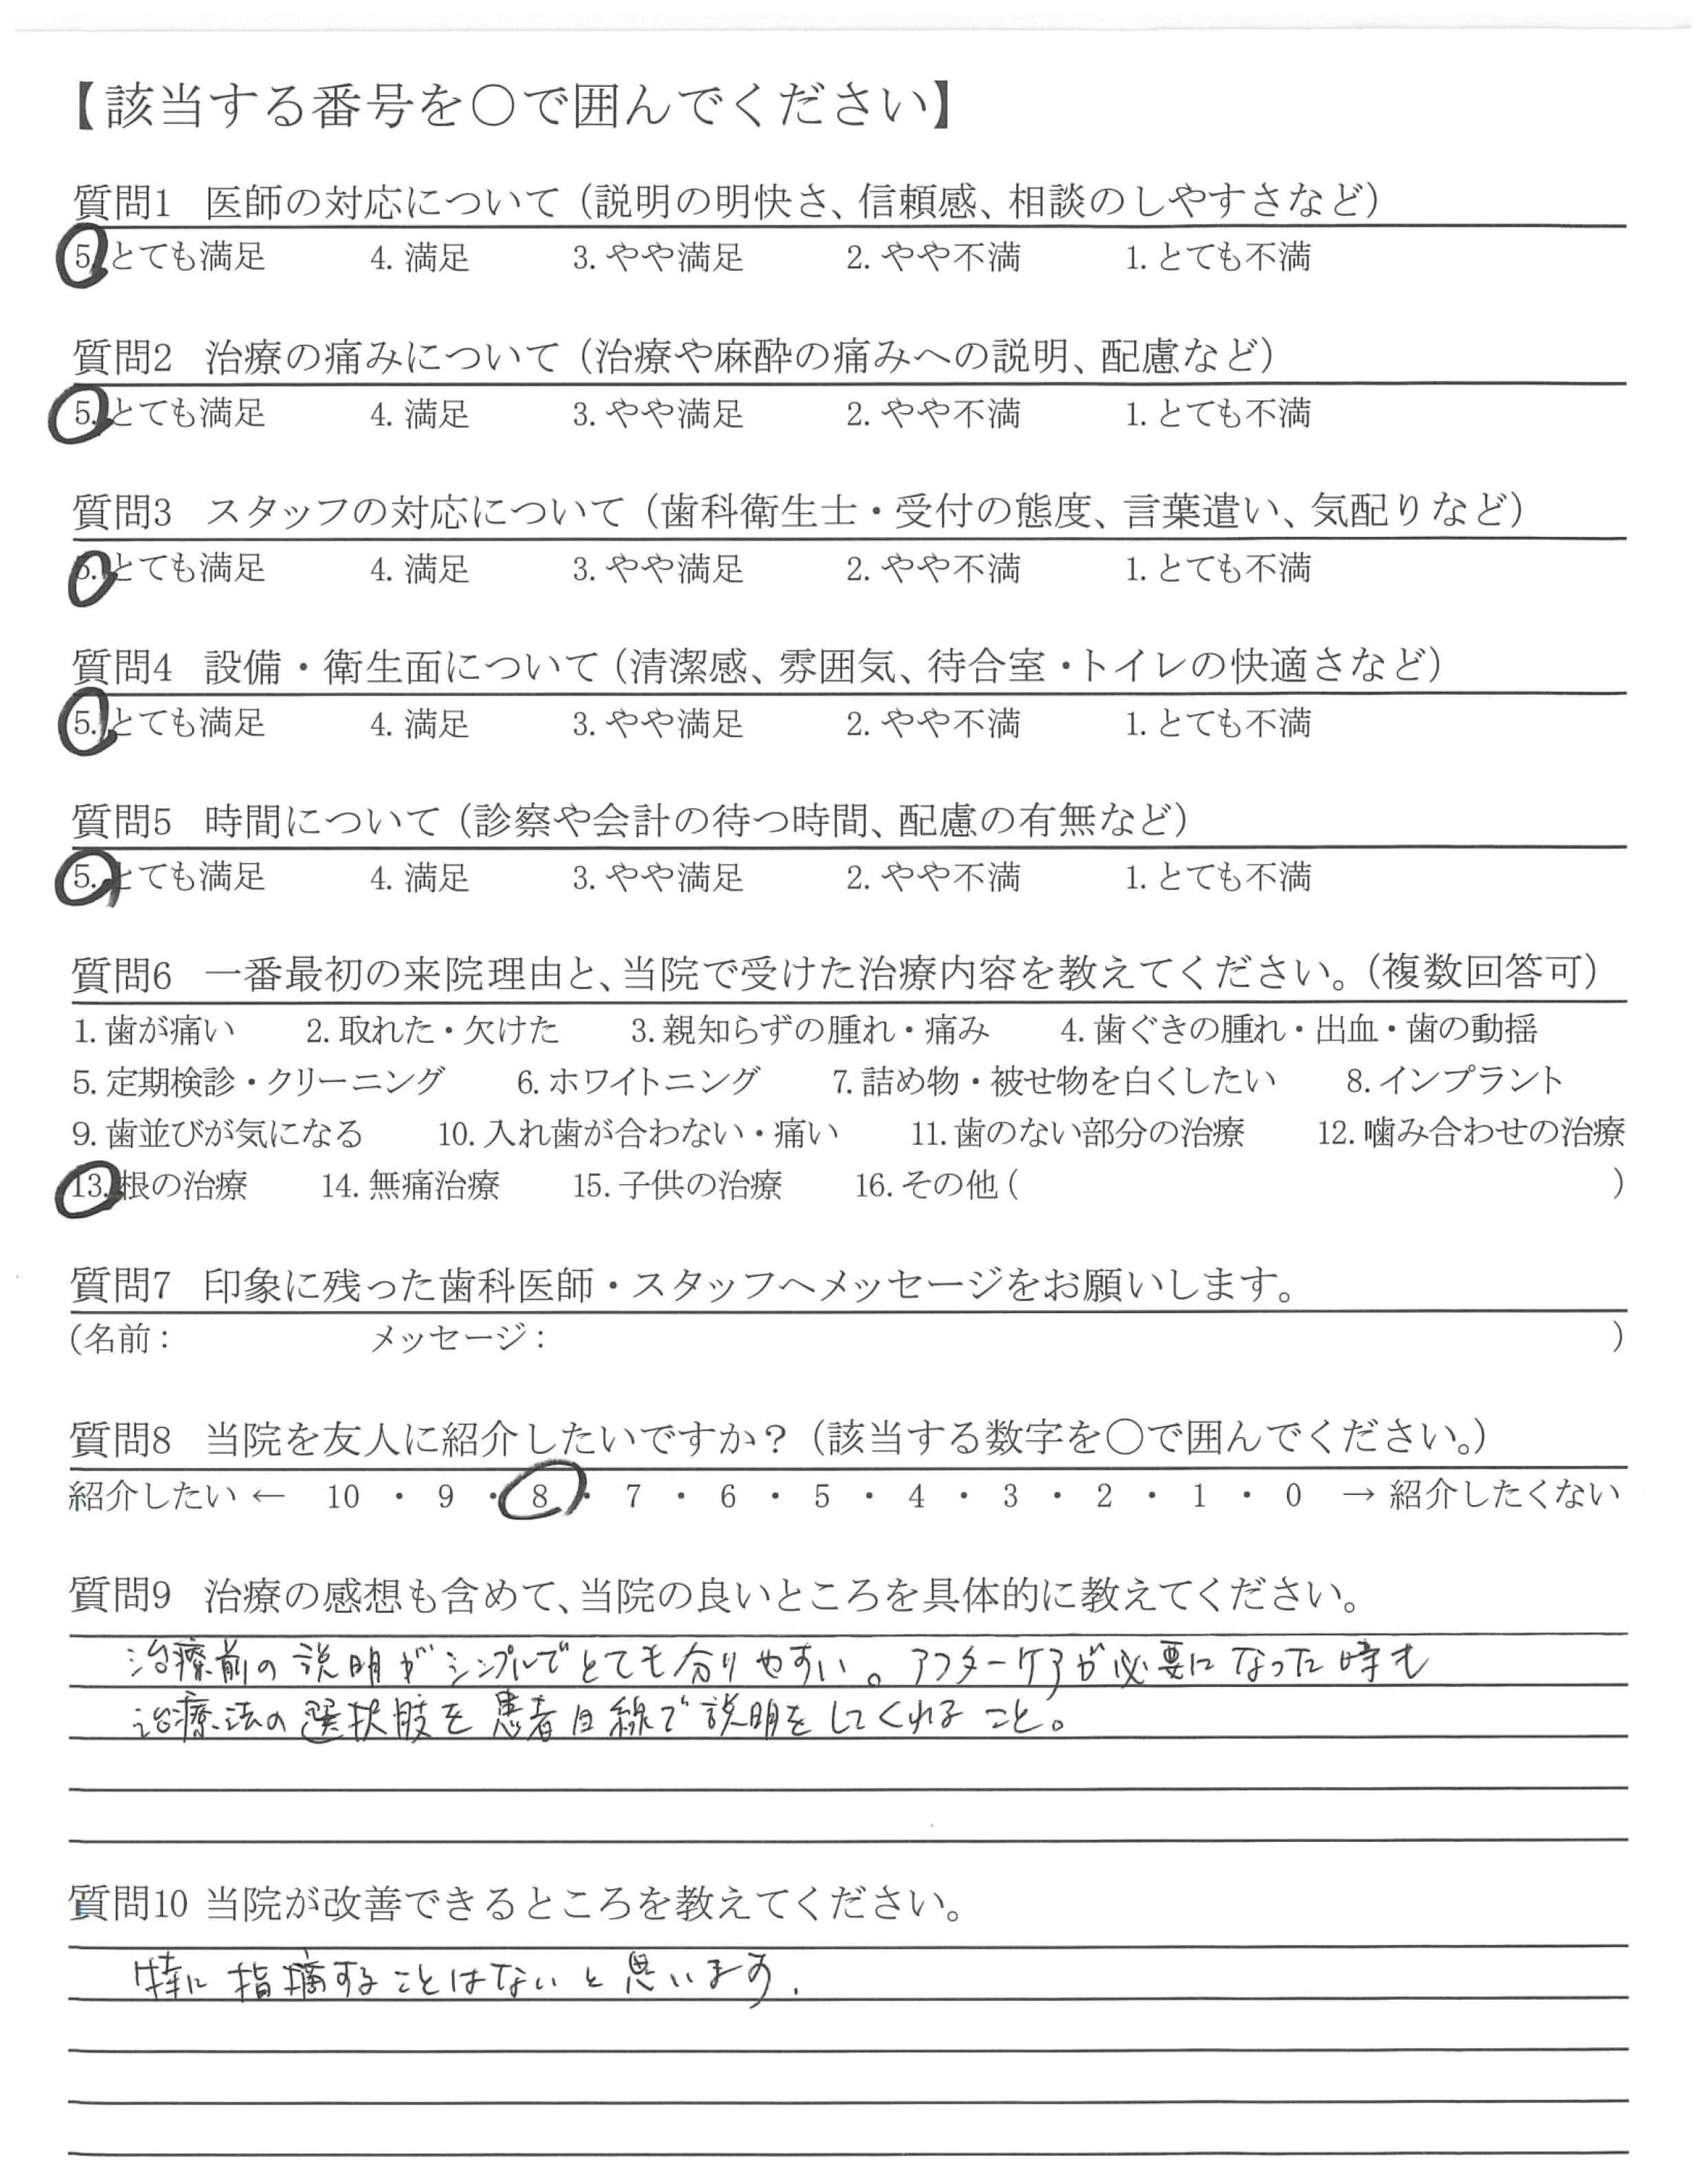 【該当する番号を〇で囲んでください】
質問1 医師の対応について（説明の明快さ、信頼感、相談のしやすさなど）
5. とても満足 4. 満足 3. やや満足 2. やや不満 1. とても不満
質問2 治療の痛みについて（治療や麻酔の痛みへの説明、配慮など）
5. とても満足 4. 満足 3. やや満足 2. やや不満 1. とても不満
質問3 スタッフの対応について（歯科衛生士・受付の態度、言葉遣い、気配りなど）
5. とても満足 4. 満足 3. やや満足 2. やや不満 1. とても不満
質問4 設備・衛生面について（清潔感、雰囲気、待合室・トイレの快適さなど）
5. とても満足 4. 満足 3. やや満足 2. やや不満 1. とても不満
質問5 時間について（診察や会計の待つ時間、配慮の有無など）
5. とても満足 4. 満足 3. やや満足 2. やや不満 1. とても不満
質問6 一番最初の来院理由と、当院で受けた治療内容を教えてください。（複数回答可）
1. 歯が痛い 2. 取れた・欠けた 3. 親知らずの腫れ・痛み 4. 歯ぐきの腫れ・出血・歯の動揺
5. 定期検診・クリーニング 6. ホワイトニング 7. 詰め物・被せ物を白くしたい 8. インプラント
9. 歯並びが気になる 10. 入れ歯が合わない・痛い 11. 歯のない部分の治療 12. 噛み合わせの治療
13. 根の治療 14. 無痛治療 15. 子供の治療 16. その他 ( )
質問7 印象に残った歯科医師・スタッフへメッセージをお願いします。
(名前： メッセージ： )
質問8 当院を友人に紹介したいですか？（該当する数字を〇で囲んでください。）
紹介したい ← 10 ・ 9 ・ 8 ・ 7 ・ 6 ・ 5 ・ 4 ・ 3 ・ 2 ・ 1 ・ 0 → 紹介したくない
質問9 治療の感想も含めて、当院の良いところを具体的に教えてください。
治療前の説明がシンプルでとても分りやすい。アフターケアが必要になった時も
治療法の選択肢を患者目線で説明をしてくれること。
質問10 当院が改善できるところを教えてください。
特に指摘することはないと思います.